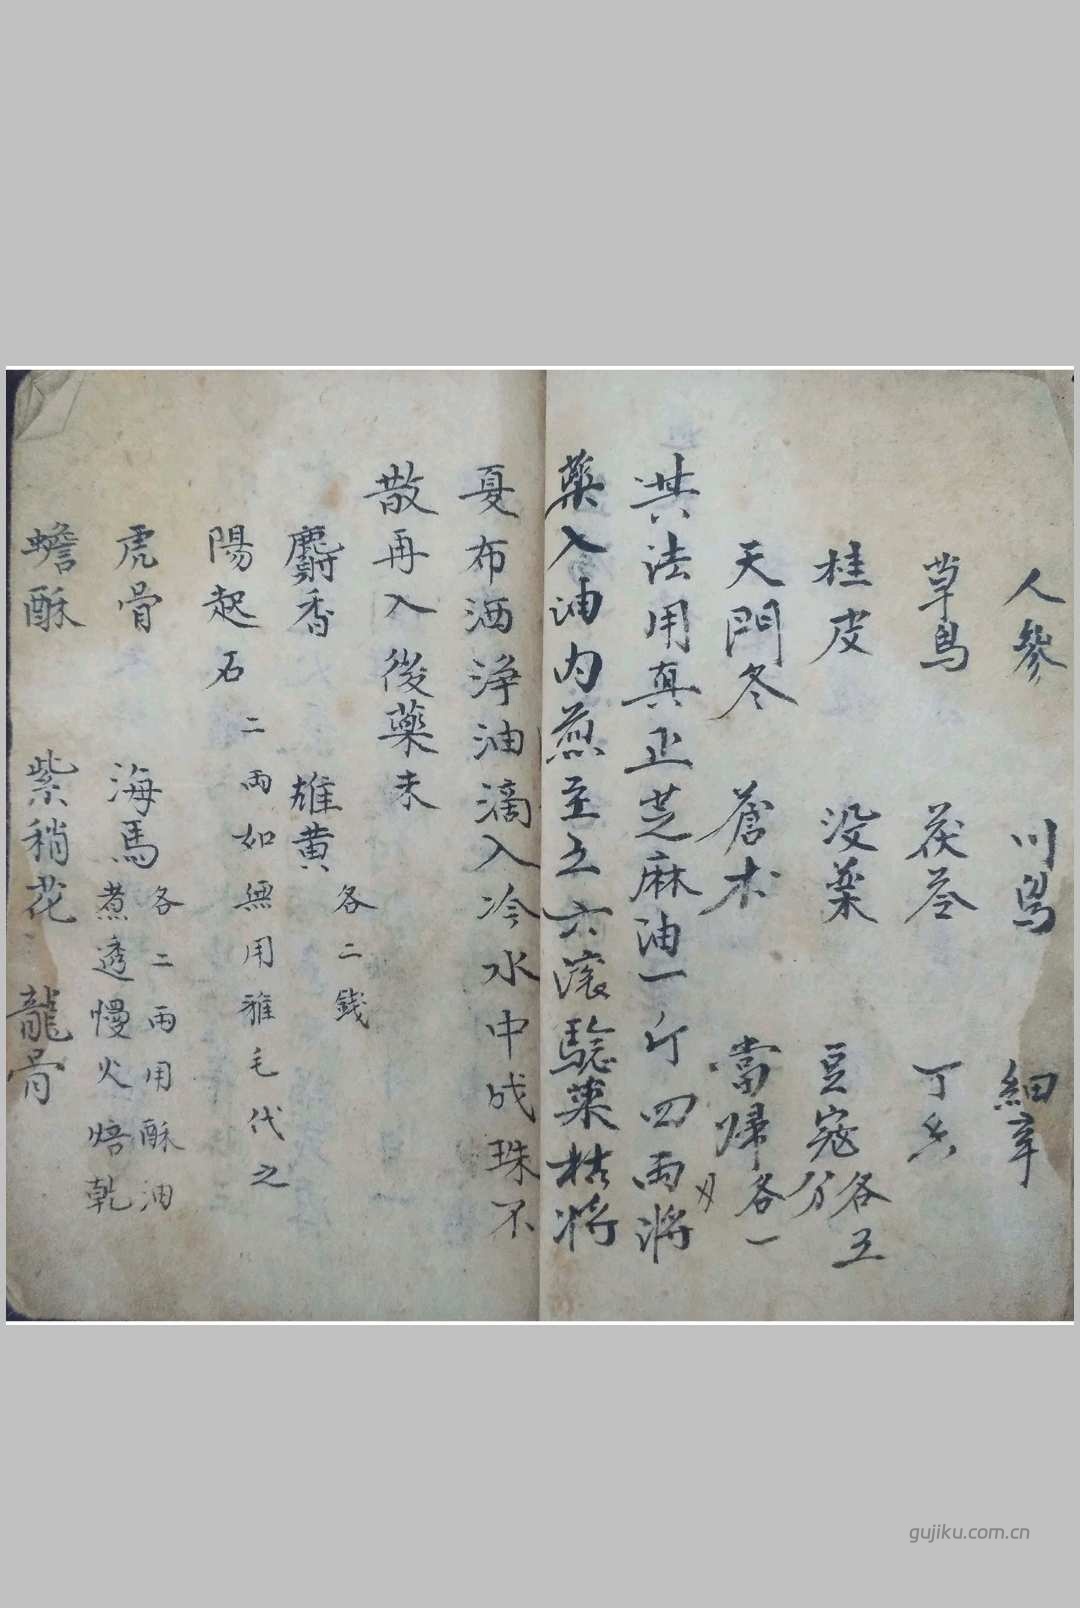 人參 川烏 細辛
草烏 茯苓 丁香
桂皮 没薬 豆寇各五分
天門冬 蒼术 當歸各一刄
其法用真正芝麻油一斤四兩將
藥入油内煎至五六滾騐藥枯將
夏布洒浄油滴入冷水中成珠不
散再入後藥末
麝香 雄黄 各二錢
陽起石 二兩如無用雅毛代之
虎骨 海馬 各二兩用酥油煮透慢火焙乾
蟾酥 紫稍花 龍骨
gujiku.com.cn